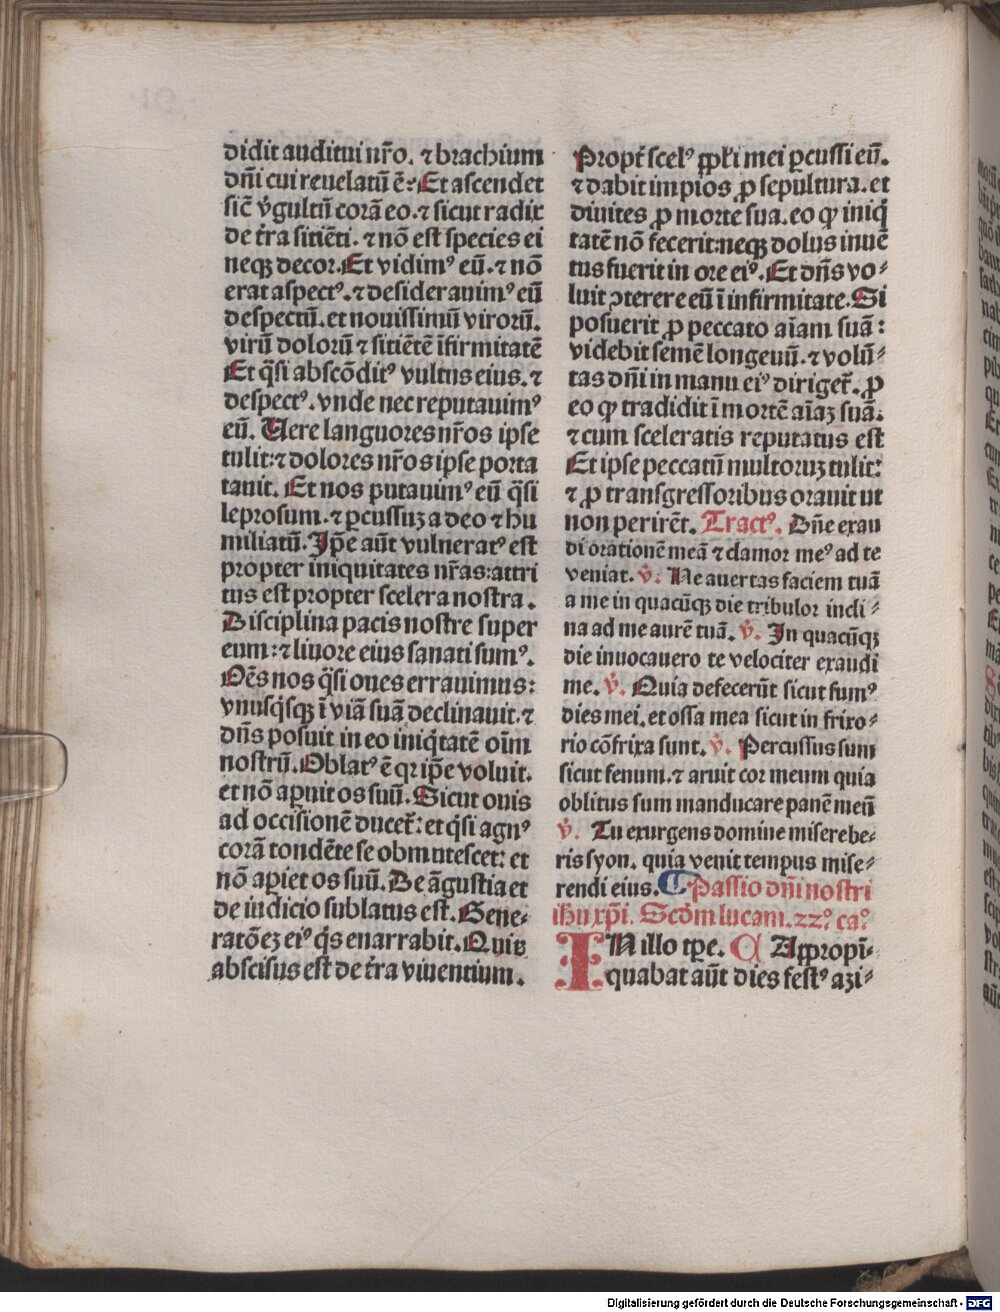 didit auditui nr̄o. ⁊ brachium
dn̄i cui reuelatū ē: Et ascendet
sic̄ v̓gultū corā eo. ⁊ sicut radix
de t̄ra sitiēti. ⁊ nō est species ei
neqꝫ decor. Et vidimꝰ eū. ⁊ nō
erat aspectꝰ. ⁊ desiderauimꝰ eū
despectū. et nouissimū virorū.
virū dolorū ⁊ sitiētē īfirmitatē
Et q̄si abscōditꝰ vultus eius. ⁊
despectꝰ. vnde nec reputauimꝰ
eū. Uere languores nr̄os ipse
tulit: ⁊ dolores nr̄os ipse porta
tauit. Et nos putauimꝰ eū q̄si
leprosum. ⁊ ꝑcussuꝫ a deo ⁊ hu
miliatū. Ip̄e aūt vulneratꝰ est
propter iniquitates nr̄as: attri
tus est propter scelera nostra.
Disciplina pacis nostre super
eum: ⁊ liuore eius sanati sumꝰ.
Oēs nos q̄si oues errauimus:
vnusq̄sqꝫ ī viā suā declinauit. ⁊
dn̄s posuit in eo iniq̄tatē oīm
nostrū. Oblatꝰ ē qꝛ ip̄e voluit.
et nō aꝑuit os suū. Sicut ouis
ad occisionē ducet̄: et q̄si agnꝰ
corā tondēte se obmutescet: et
nō aꝑiet os suū. De āgustia et
de iudicio sublatus est. Gene⸗
ratōeꝫ eiꝰ q̄s enarrabit. Quia
abscisus est de t̄ra viuentium.
Propt̄ scelꝰ pp̄li mei ꝑcussi eū.
⁊ dabit impios ꝓ sepultura. et
diuites ꝓ morte sua. eo ꝙ iniq̄
tatē nō fecerit: neqꝫ dolus inuē
tus fuerit in ore eiꝰ. Et dn̄s vo⸗
luit ꝯterere eū ī infirmitate. Si
posuerit ꝓ peccato aīam suā:
videbit semē longeuū. ⁊ volū⸗
tas dn̄i in manu eiꝰ diriget̄. ꝓ
eo ꝙ tradidit ī mortē aīaꝫ suā.
⁊ cum sceleratis reputatus est
Et ipse peccatū multoruꝫ tulit:
⁊ ꝓ transgressoribus orauit ut
non perirēt. Tractꝰ. Dn̄e exau
di orationē meā ⁊ clamor meꝰ ad te
veniat. v̓. Ne auertas faciem tuā
a me in quacūqꝫ die tribulor incli⸗
na ad me aurē tuā. v̓. In quacūqꝫ
die inuocauero te velociter exaudi
me. v̓. Quia defecerūt sicut fumꝰ
dies mei. et ossa mea sicut in frixo⸗
rio cōfrixa sunt. v̓. Percussus sum
sicut fenum. ⁊ aruit cor meum quia
oblitus sum manducare panē meū
v̓. Tu exurgens domine miserebe⸗
ris syon. quia venit tempus mise⸗
rendi eius. ¶ Passio dn̄i nostri
ih̄u xp̄i. Scd̄m lucam. 22º caº
IN illo tꝑe. ¶ Appropī⸗
quabat aūt dies festꝰ azi⸗
Digitalisierung gefördert durch die Deutsche Forschungsgemeinschaft - DFG